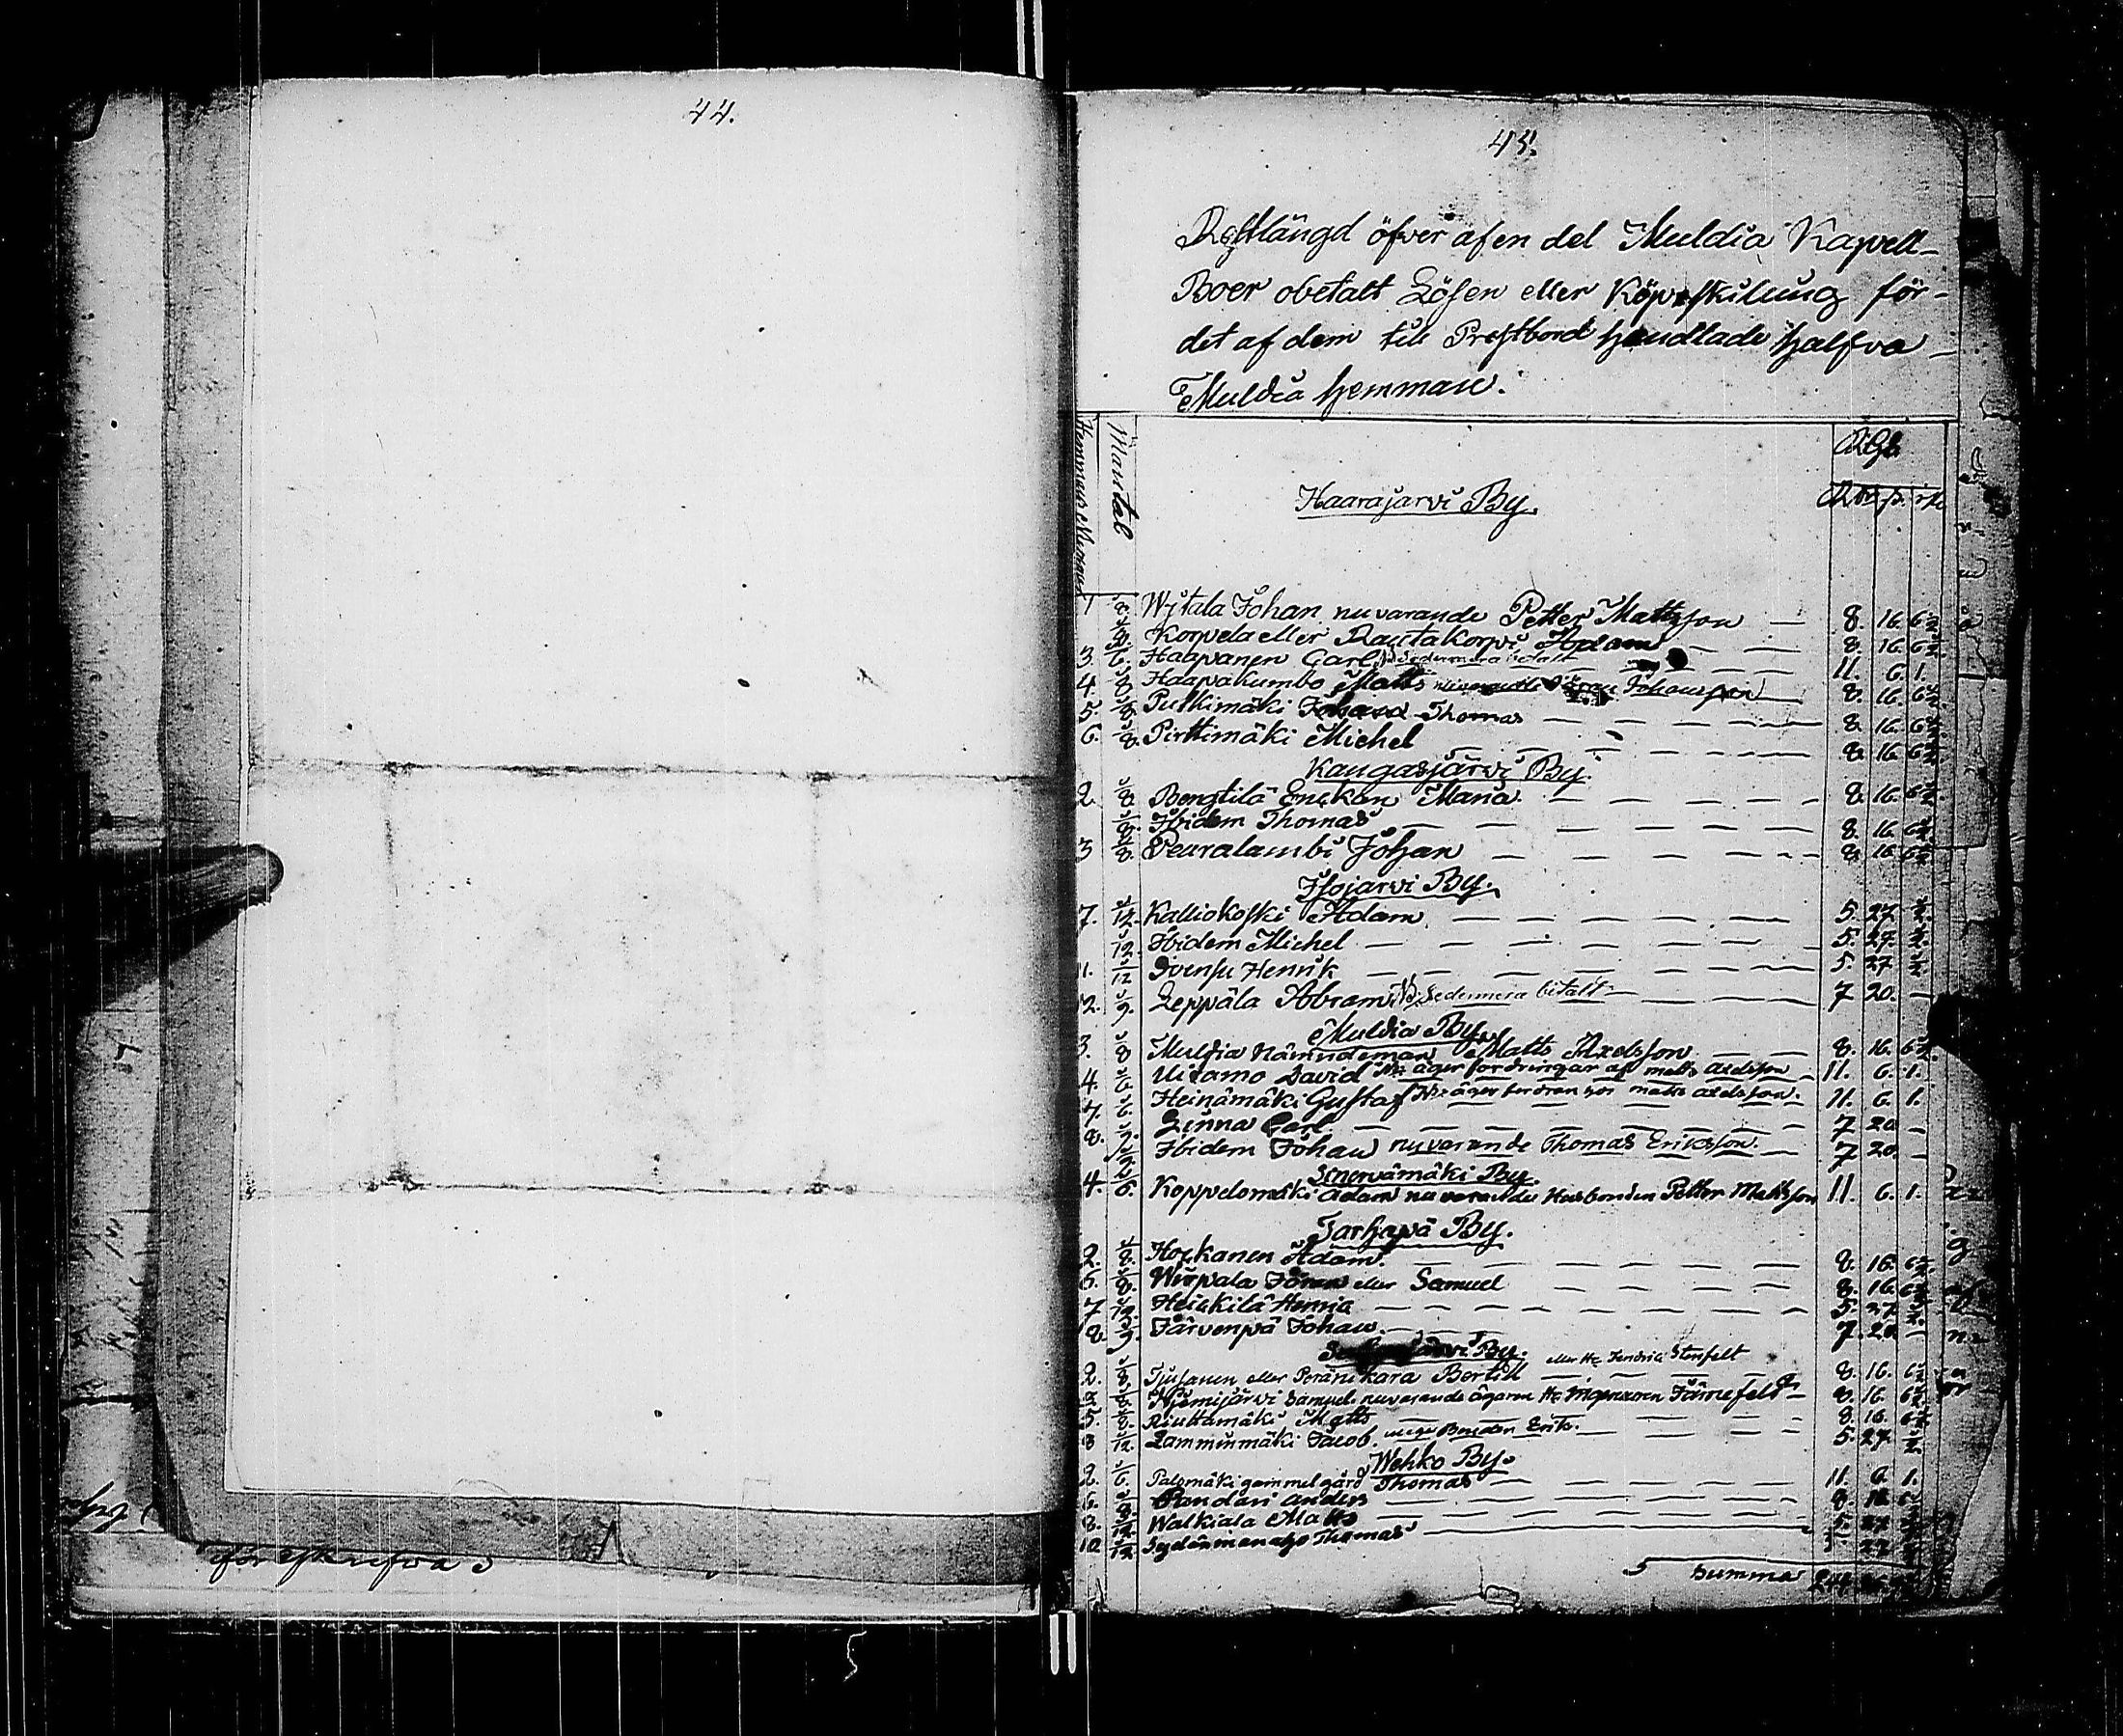 44.
45.
Restlängd öfver af en del Muldia Kapell-
Boer obetalt Lösen eller Köpeskilling för-
det af dem till Prestbord handlade halfva
Muldia hemman.
Hemmans Mantal RGS
Haarajarvi By. Rdr ß. rst
1 1/8 Wjtala Johan nuvarande Petter Mattsson — 8. 16. 6 1/2
1/8. Korpela eller Rautakorpi Adam — 8. 16. 6 1/2
3. 1/6. Haapanen Carl NB Sedermera betalt — 11. 6. 1.
4. 1/8 Haapakumbo Matts Johansson — 8. 16. 6 1/2
5. 1/8 Putkimäki Thomas — 8. 16. 6 1/2
6. 1/8. Pirttimäki Michel — 8. 16. 6 1/2
Kangasjärvi By.
2. 1/8 Bengtilä Enckan Maria — 8. 16. 6 1/2
1/8. Ibidem Thomas — 8. 16. 6 1/2
3 1/8. Peuralambi Johan — 8. 16. 6 1/2
Isojarvi By.
7. 1/12. Kalliokoski Adam — 5. 27. 1/2.
1/12. Ibidem Michel — 5. 27. 1/2.
11. 1/12 Henrik — 5. 27 1/2.
12. 1/9. Leppäla Abram NB Sedermera betalt — 7 20. —
Muldia By.
3. 1/8 Muldia Nämndeman Matts Axelsson — 8. 16. 6 1/2
4. 1/6 Uitamo David NB äger fordringar af matts axelsson — 11. 6. 1.
7. 1/6. Heinämäki Gustaf NB äger fordran hos matts axelsson. 11. 6. 1.
8. 1/9. Linna Carl — 7 20 —
1/9. Ibidem Johan nuvarande Thomas Eriksson. — 7 20. —
Sinervämäki By.
4. 1/6. Koppelomäki Adam nuvarande Husbonden Petter Mattsson 11. 6. 1.
Tarhapä By.
2. 1/8. Hoskanen Adam. — 8. 16. 6 1/2
5. 1/8. Wirpala eller Samuel — 8. 16. 6 1/2
7 1/12. Heickilä — 5. 27 1/2.
8. 1/9. Järvenpä Johan. — 7. 20. —
By. eller Hr Fendrik Stenfelt
2. 1/8. Tjusanen eller Peränckara Bertill — 8. 16. 6 1/2
1/8. Samuel nuvarande ägaren Hr Järnefelt — 8. 16. 6 1/2
5. 1/8. Riuttamäki Matts — 8. 16. 6 1/2
8 1/12. Lamminmäki Jacob. Bonden Erik. — 5. 27. 1/2
Wehko By.
2. 1/6 Palomäki gammelgård Thomas — 11. 6. 1.
6. 1/8. Anders — 8. 16. 6 1/2
8. 1/12. Walkiala Matts — 5. 27
10. 1/12 Thomas — 27
Summa
föreskrefva
5